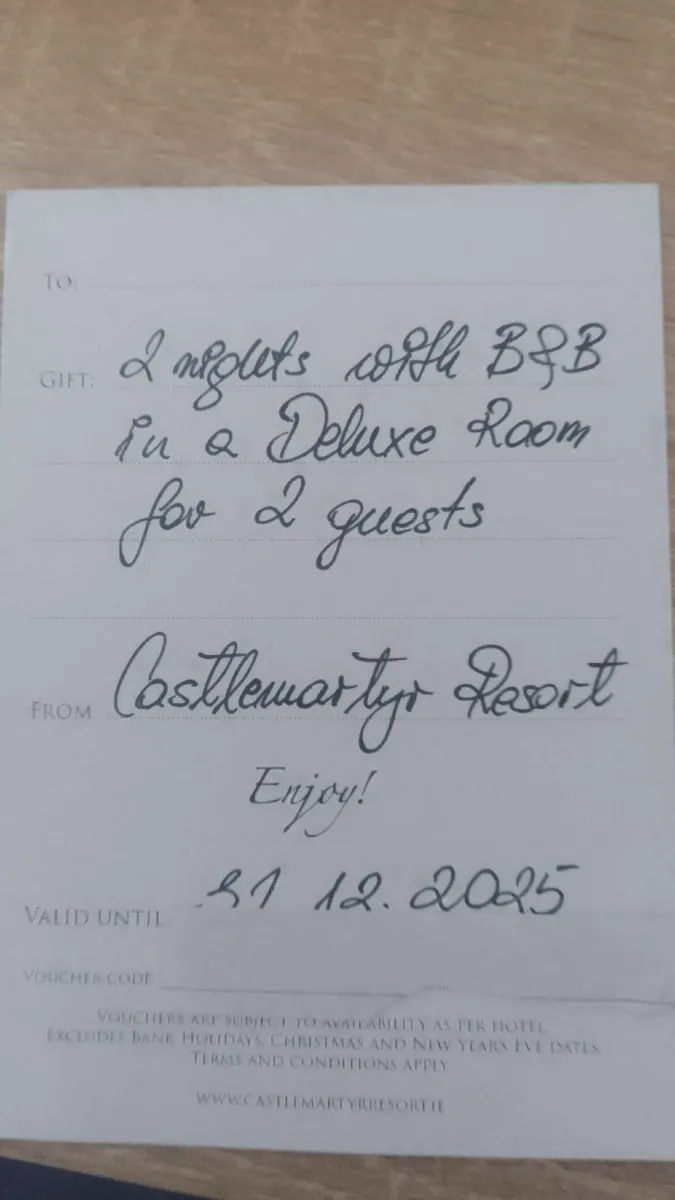 TO:
GIFT: 2 nights with B&B
in a Deluxe Room
for 2 guests
FROM Castlemartyr Resort
Enjoy!
VALID UNTIL 31 12. 2025
VOUCHER CODE
VOUCHERS ARE SUBJECT TO AVAILABILITY AS PER HOTEL
EXCLUDES BANK HOLIDAYS, CHRISTMAS AND NEW YEARS EVE DATES.
TERMS AND CONDITIONS APPLY
WWW.CASTLEMARTYRRESORT.IE